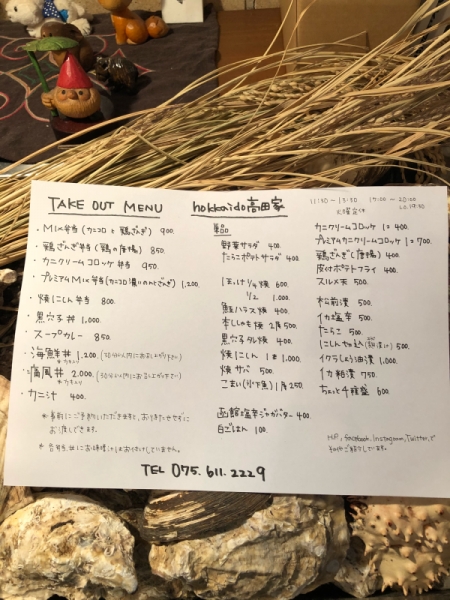 TAKE OUT MENU
・MIX弁当(カニコロと鶏ざんぎ) 900.
・鶏ざんぎ弁当(鶏の唐揚) 850.
・カニクリームコロッケ弁当 950.
・プレミアムMIX弁当 1.200
・焼にしん弁当 800.
・黒穴子丼 1.000.
・スープカレー 850.
・海鮮丼 1.200
・痛風丼 2.000.
・カニ汁 400.
TEL 075.611.2229
hokkaido高田家
単品
野菜サラダ 400.
たらこポテトサラダ 400.
ほっけ1/4焼 600.
1/2 1.000
鮭ハラス焼 400.
本ししゃも焼 2尾 500
黒穴子タレ焼 400.
焼にしん 1本 1.000
焼サバ 500.
こまい(氷下魚) 1尾 250
函館塩辛ジャガバター 400
白ごはん 100.
11:30 - 13:30 17:00 - 20:00
火曜定休 L.O 19:30
カニクリームコロッケ 1ヶ 400
プレミアムカニクリームコロッケ 1ヶ 700.
鶏ざんぎ(唐揚) 400
皮付ポテトフライ 400.
スルメ天 500.
松前漬 500.
イカ塩辛 500.
たらこ 500.
にしん切込 500.
イクラしょうゆ漬 1.000.
カニ粕漬 750.
ちょっと4種盛 600
HP, Facebook, Instagram, Twitter, で